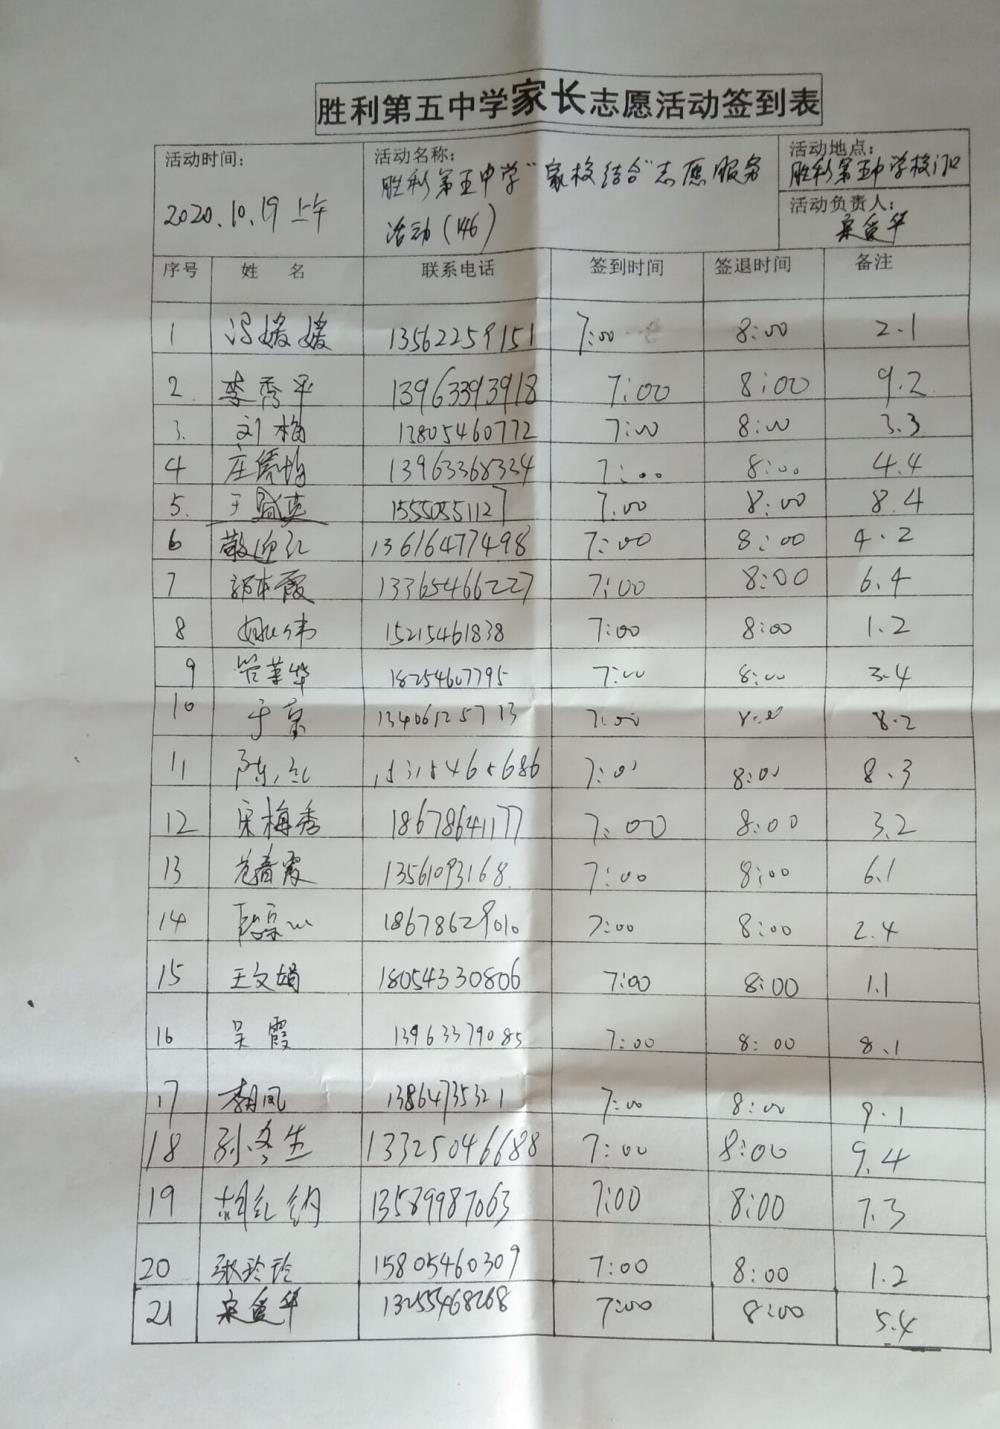 胜利第五中学家长志愿活动签到表
活动时间:
2020.10.19 上午
活动名称:
胜利第五中学"家校结合"志愿服务
活动(146)
活动地点:
胜利第五中学校门口
活动负责人:
宋爱华
序号 姓 名 联系电话 签到时间 签退时间 备注
1 冯媛媛 13562259151 7:00 8:00 2.1
2 李秀平 13963393918 7:00 8:00 9.2
3. 刘梅 13805460772 7:00 8:00 3.3
4 13963368334 7:00 8:00 4.4
5. 15550551127 7:00 8:00 8.4
6 敬迎红 13616477498 7:00 8:00 4.2
7 郭本霞 13365466227 7:00 8:00 6.4
8 姚伟 15215461838 7:00 8:00 1.2
9 18254607795 7:00 8:00 3.4
10 于京 13406125713 7:00 8:00 8.2
11 陈红 15315465686 7:00 8:00 8.3
12 宋梅秀 18678641177 7:00 8:00 3.2
13 13561093168 7:00 8:00 6.1
14 18678629010 7:00 8:00 2.4
15 王文娟 18054330806 7:00 8:00 1.1
16 吴霞 13963379085 7:00 8:00 8.1
17 13864735321 7:00 8:00 9.1
18 孙冬生 13325046688 7:00 8:00 9.4
19 胡红纳 13589987063 7:00 8:00 7.3
20 张玲玲 15805460309 7:00 8:00 1.2
21 宋爱华 13255468268 7:00 8:00 5.4